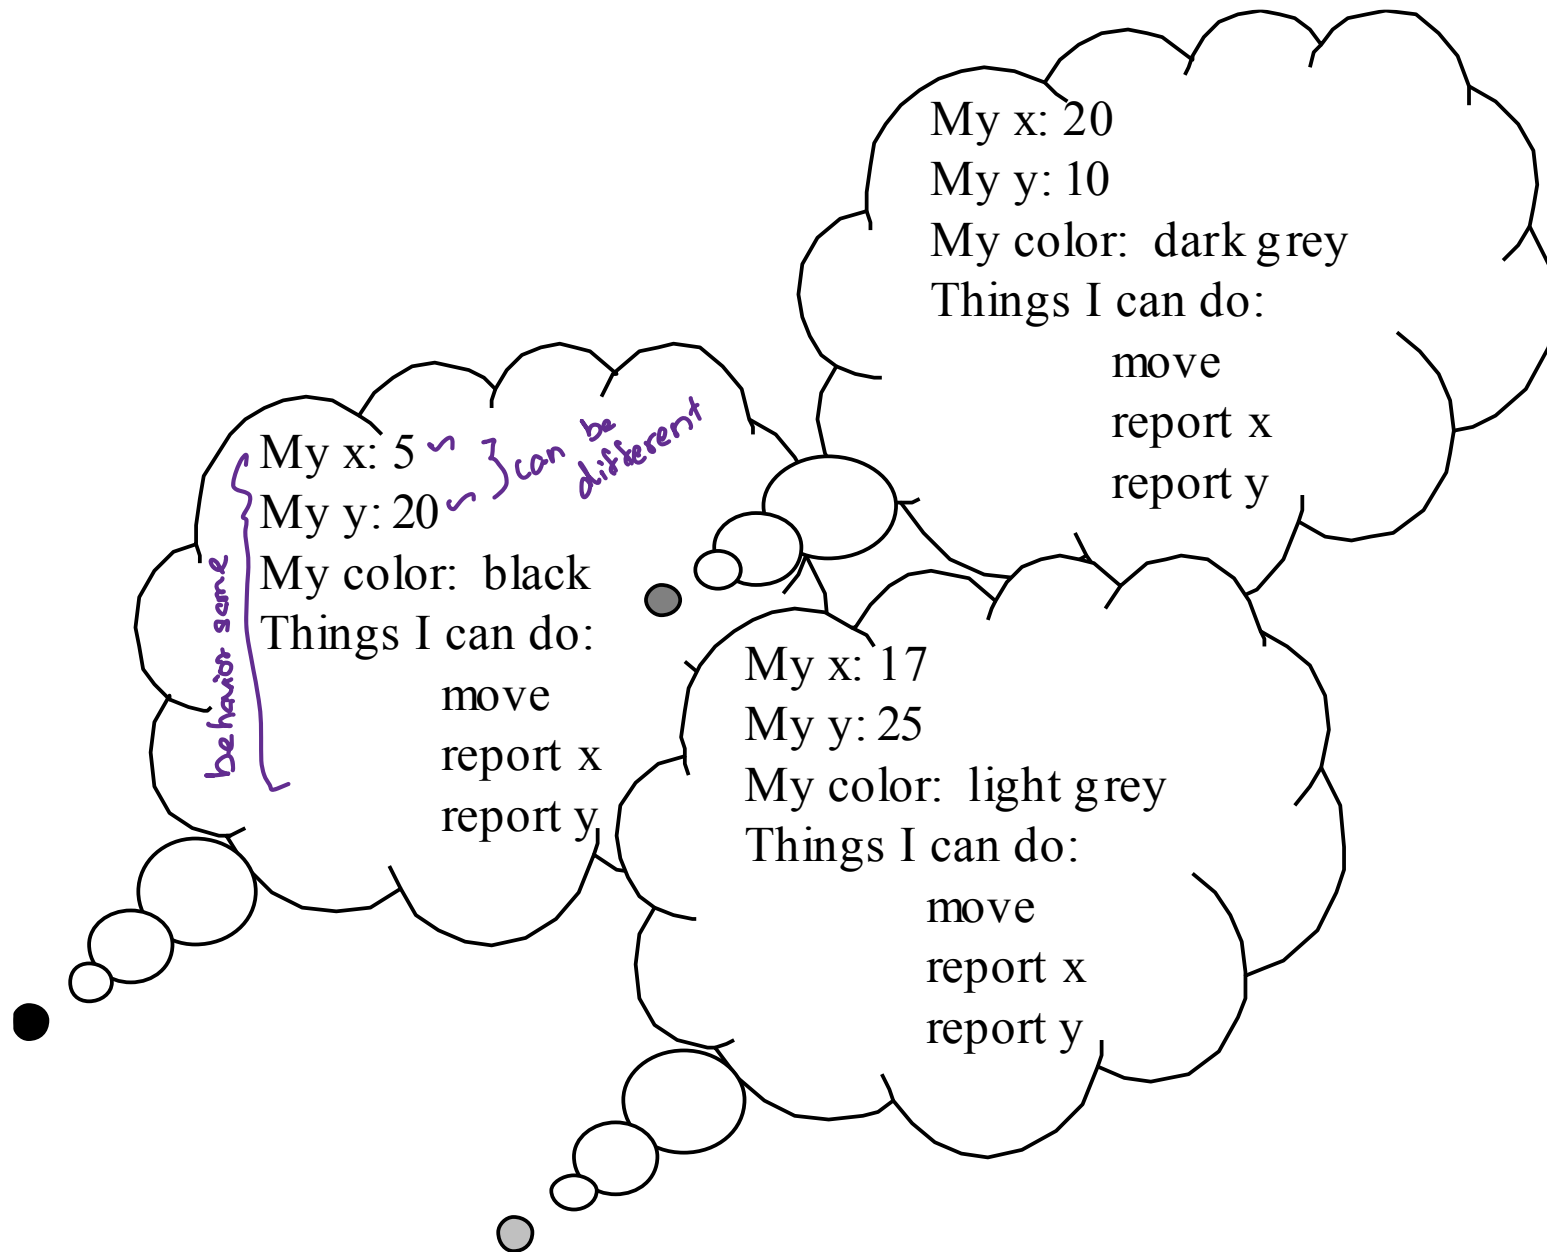 My x: 20
My y: 10
My color: dark grey
Things I can do:
move
report x
report y
My x: 5
My y: 20
can be
different
behavior same
My color: black
Things I can do:
move
report x
report y
My x: 17
My y: 25
My color: light grey
Things I can do:
move
report x
report y